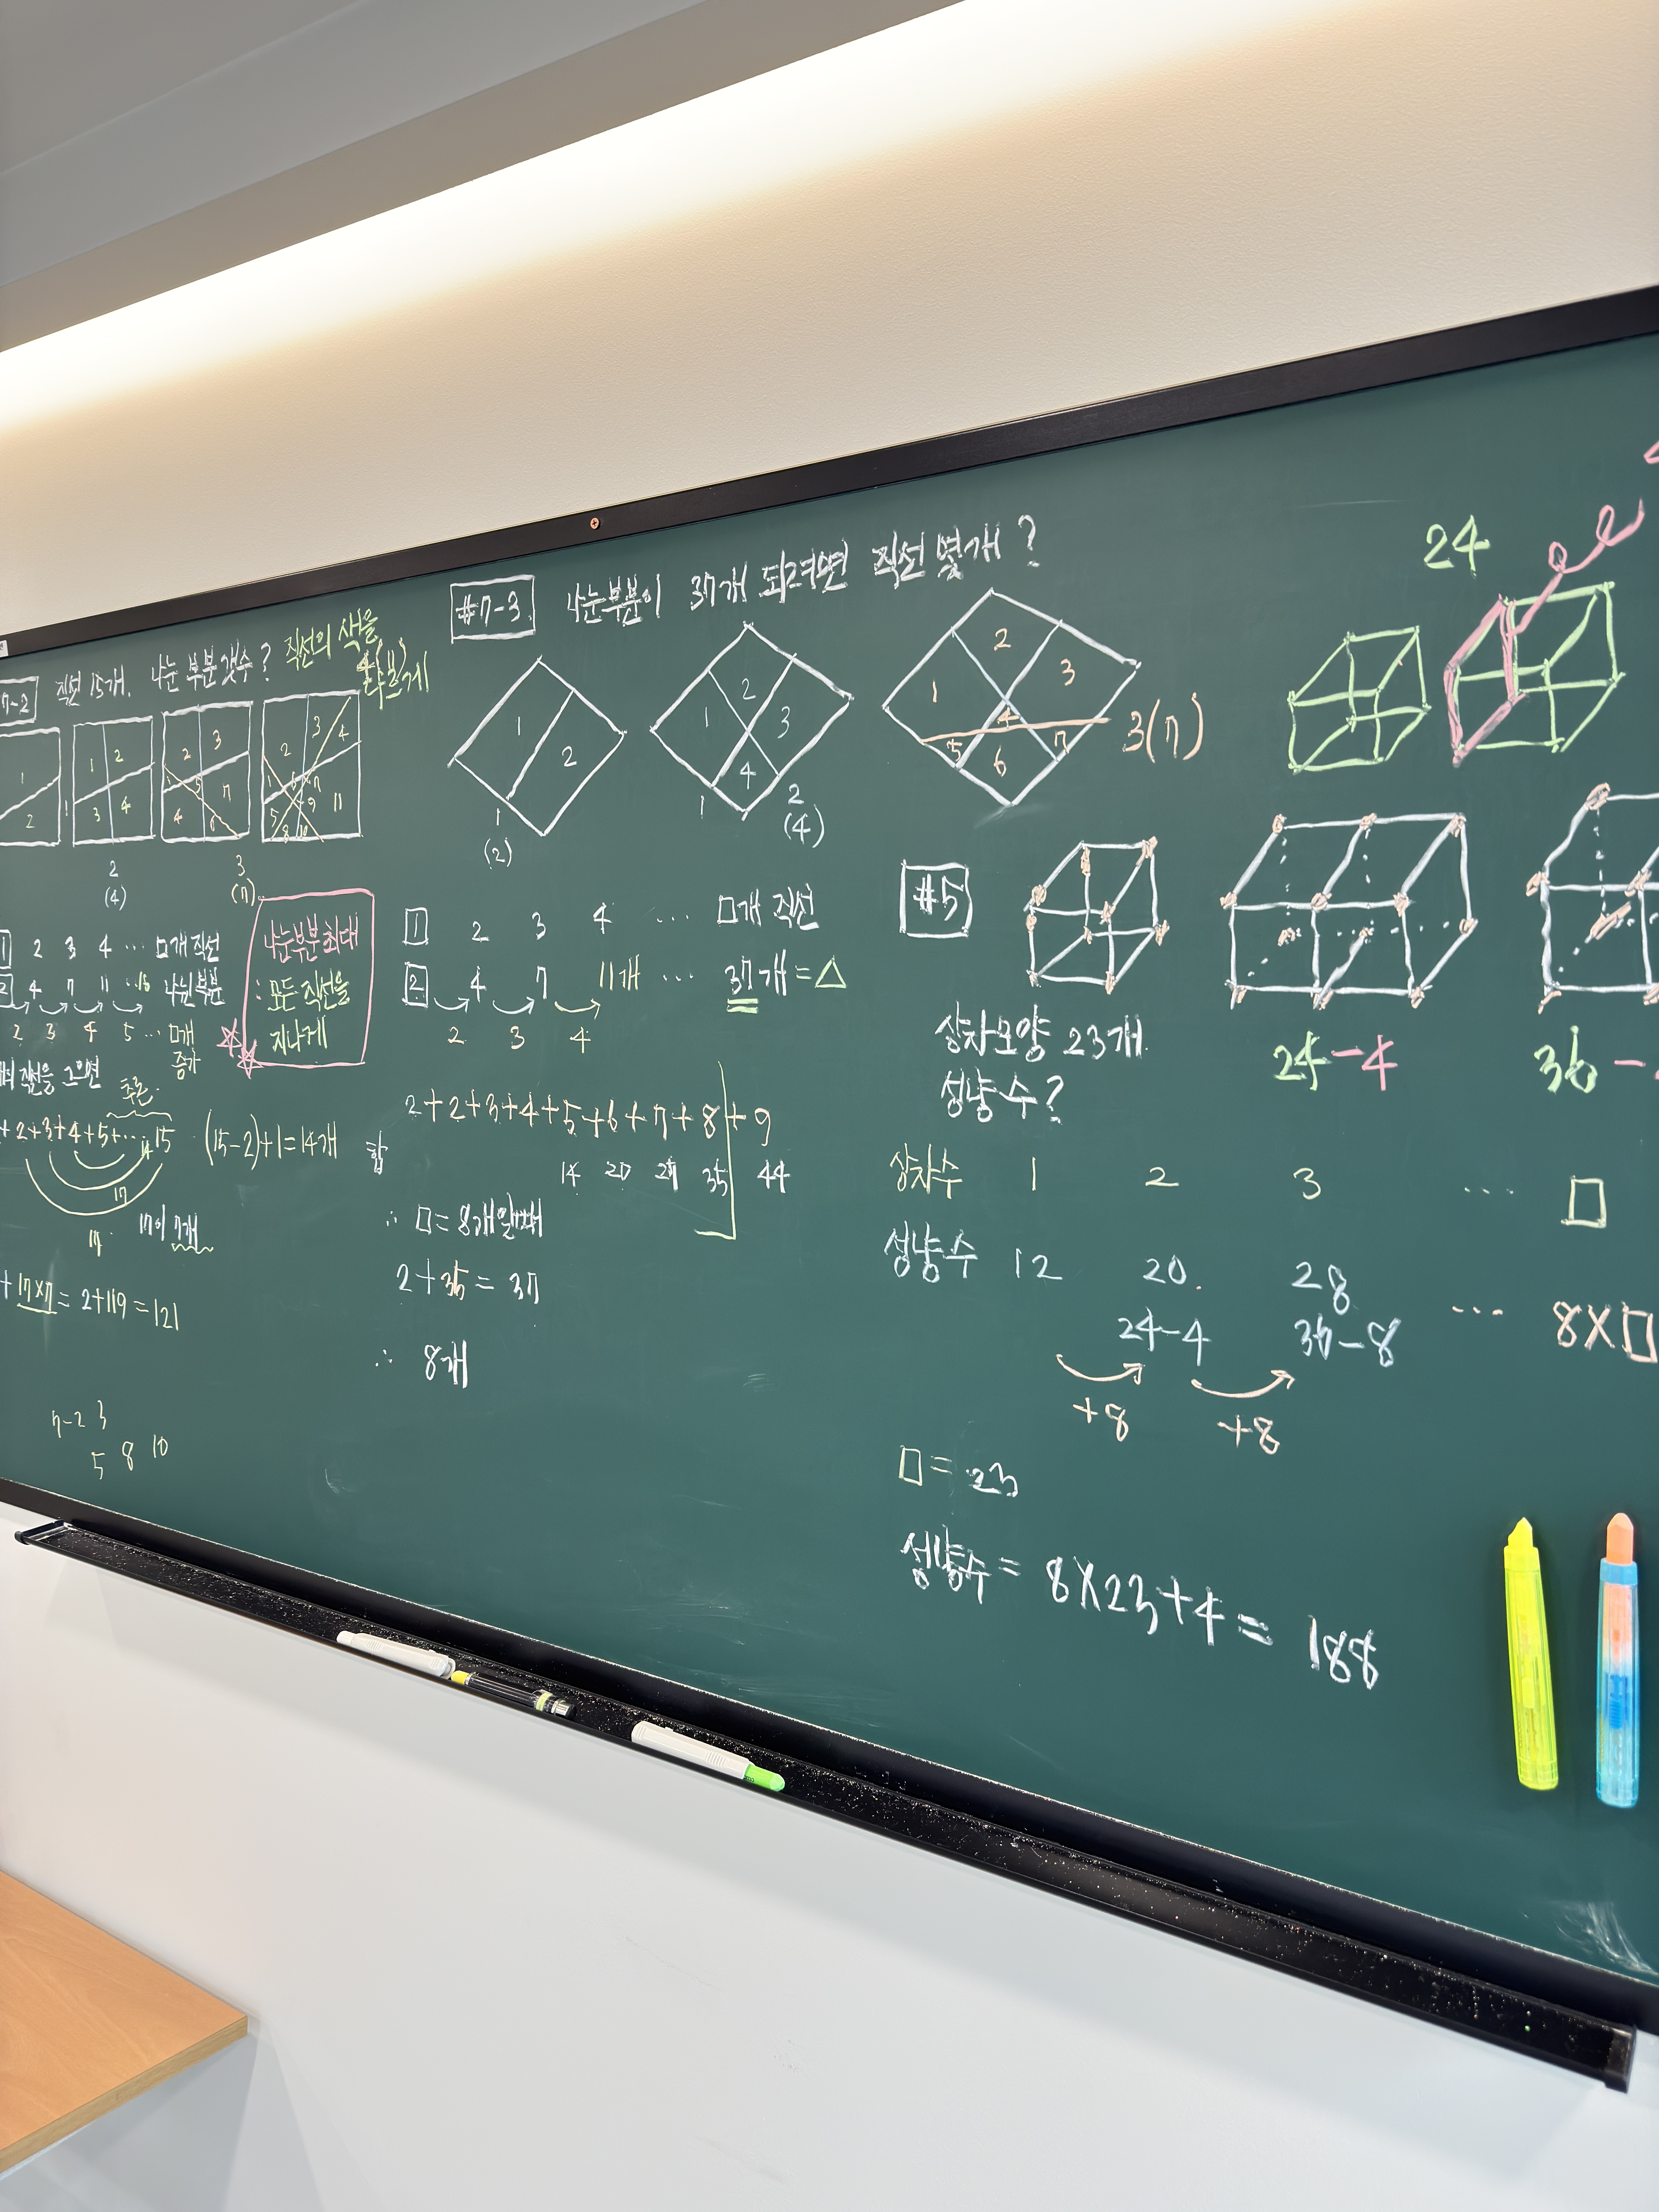 7-2 직선 15개. 나눈 부분 갯수? 직선의 색을
다르게
1 2
1 2 3 4
2 3 1 5 4 6 7
2 3 4 1 6 7 5 9 11 8 10
2 3
(4) (7)
1 2 3 4 ... □개 직선
2 4 7 11 ... 나뉜 부분
2 3 4 5 ... □개
증가
나눈부분 최대
: 모든 직선을
지나게
직선을 그으면
추론.
+2+3+4+5+... 14 15 (15-2)+1=14개
17
17 17이 7개
+ 17×7 = 2+119 = 121
7-2 3
5 8 10
#7-3 나눈부분이 37개 되려면 직선 몇개?
1 2
1 2 3 4
1 2 3 4 5 6 7
1 1 2 3(7)
(2) (4)
1 2 3 4 ... □개 직선
2 4 7 11개 ... 37개 = △
2 3 4
2+2+3+4+5+6+7+8+9
합 14 20 27 35 44
∴ □ = 8개일때
2+35 = 37
∴ 8개
24
#5
상자모양 23개
성냥 수?
24-4 36-
상자수 1 2 3 ... □
성냥수 12 20. 28
24-4 36-8 ... 8×□
+8 +8
□ = 23
성냥수 = 8×23+4 = 188